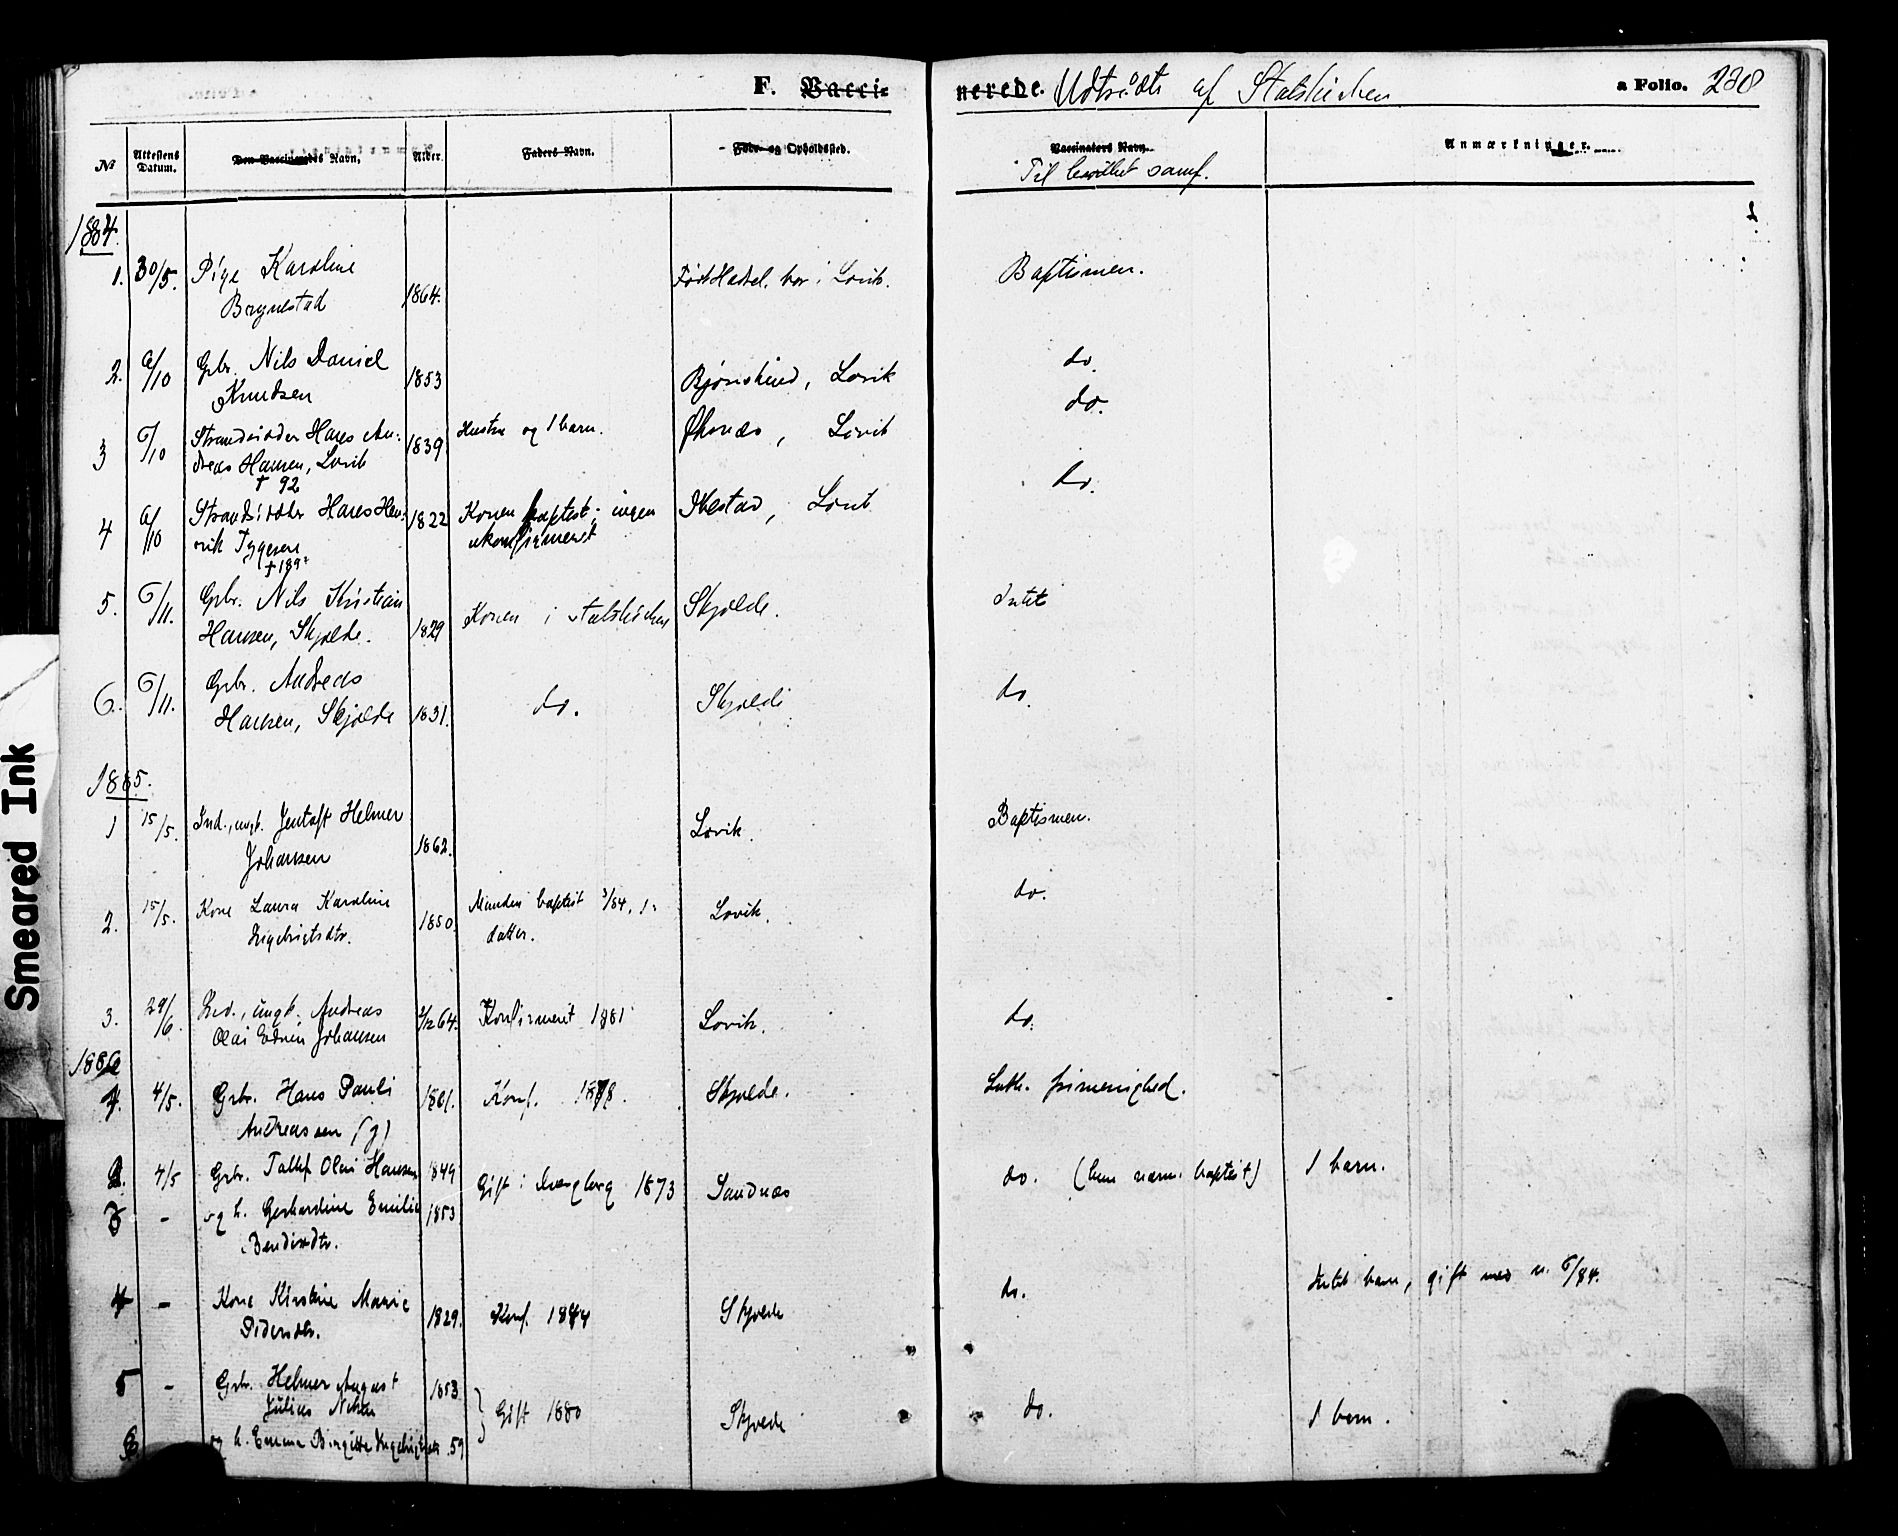 F. Vacci-
nerede. Udtrådte af Statskirken
a Folio. 230
№
Attestens Datum.
Den Vaccineredes Navn.
Alder.
Faders Navn.
Føde- og Opholdssted.
Vaccinators Navn.
Til hvilket samf.
Anmærkninger.
1884.
1. 30/5. Pige Karoline
Brynestad 1864. Født Hadsel, bor i Lovik. Baptismen.
2. 6/10 Grbr. Nils Daniel
Knudsen 1853 Bjørnskind, Lovik do.
3 6/10 Strandsidder Hans An-
dreas Hansen, Lovik 1839 Hustru og 1 barn. Øksnæs, Lovik do.
† 92
4 6/10 Strandsidder Hans Hen-
rik Tygesen 1822 Konen baptist; ingen
ukonfirmeret Ibestad, Lovik do.
† 189
5. 6/11. Grbr. Nils Kristian
Hansen, Skjolde. 1829 Konen i statskirken Skjolde. Intet
6. 6/11. Grbr. Andreas
Hansen, Skjolde 1831. do. Skjolde do.
1885.
1 15/5. Ind., ungk. Jentoft Helmer
Johansen 1862. Lovik. Baptismen.
2. 15/5. Kone Laura Karoline
Ingebrigtsdtr. 1850 Manden baptist /84, 1
datter. Lovik. do.
3. 29/6. Ind., ungk. Andreas
Olai Edvin Johansen 2/12 64. Konfirmeret 1881 Lovik. do.
1886
1. 4/5. Grbr. Hans Pauli
Andreassen (g) 1861. Konf. 1878. Skjolde. Luth. frimenighed.
2. 4/5 Grbr. Tollef Olai Hansen 1849 Gift i Dverberg 1873 Sandnæs do. (hun nærm. baptist) 1 barn.
3 - og h. Gerhardine Emilie 1853
Bendixdtr.
4 - Kone Kirstine Marie
Pedersdtr. 1829. Konf. 1844 Skjolde do. Intet barn, gift med n. 6/84.
5 - Grbr. Helmer August
Julius Nilsen 1853 Gift 1880 Skjolde do. 1 barn.
6 og h. Emma Birgitte 59
Smeared Ink